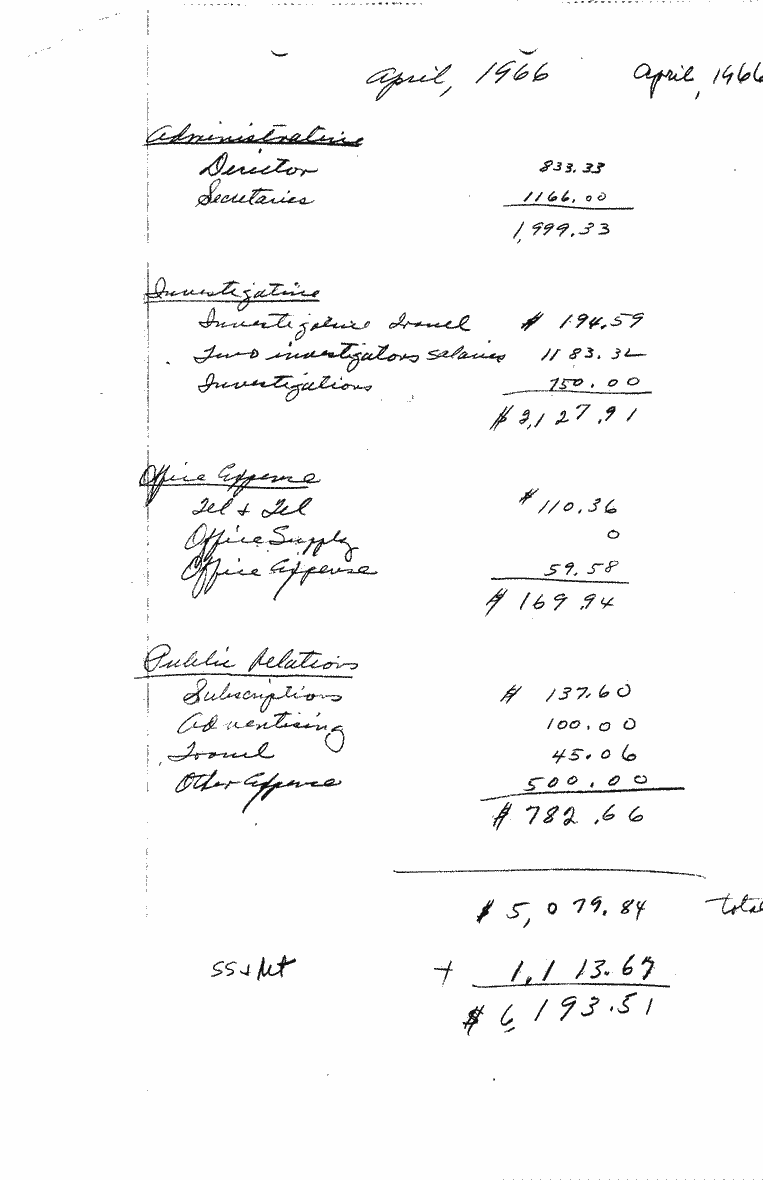 April, 1966 April, 1966
Administrative
Director 833.33
Secretaries 1166.00
1,999.33
Investigative
Investigative Travel $ 194.59
Two investigators salaries 1183.32
Investigations 750.00
$ 2,127.91
Office Expense
Tel & Tel $ 110.36
Office Supply 0
Office Expense 59.58
$ 169.94
Public Relations
Subscriptions $ 137.60
Advertising 100.00
Travel 45.06
Other Expense 500.00
$ 782.66
$ 5,079.84 total
SS & + 1,113.67
$ 6,193.51